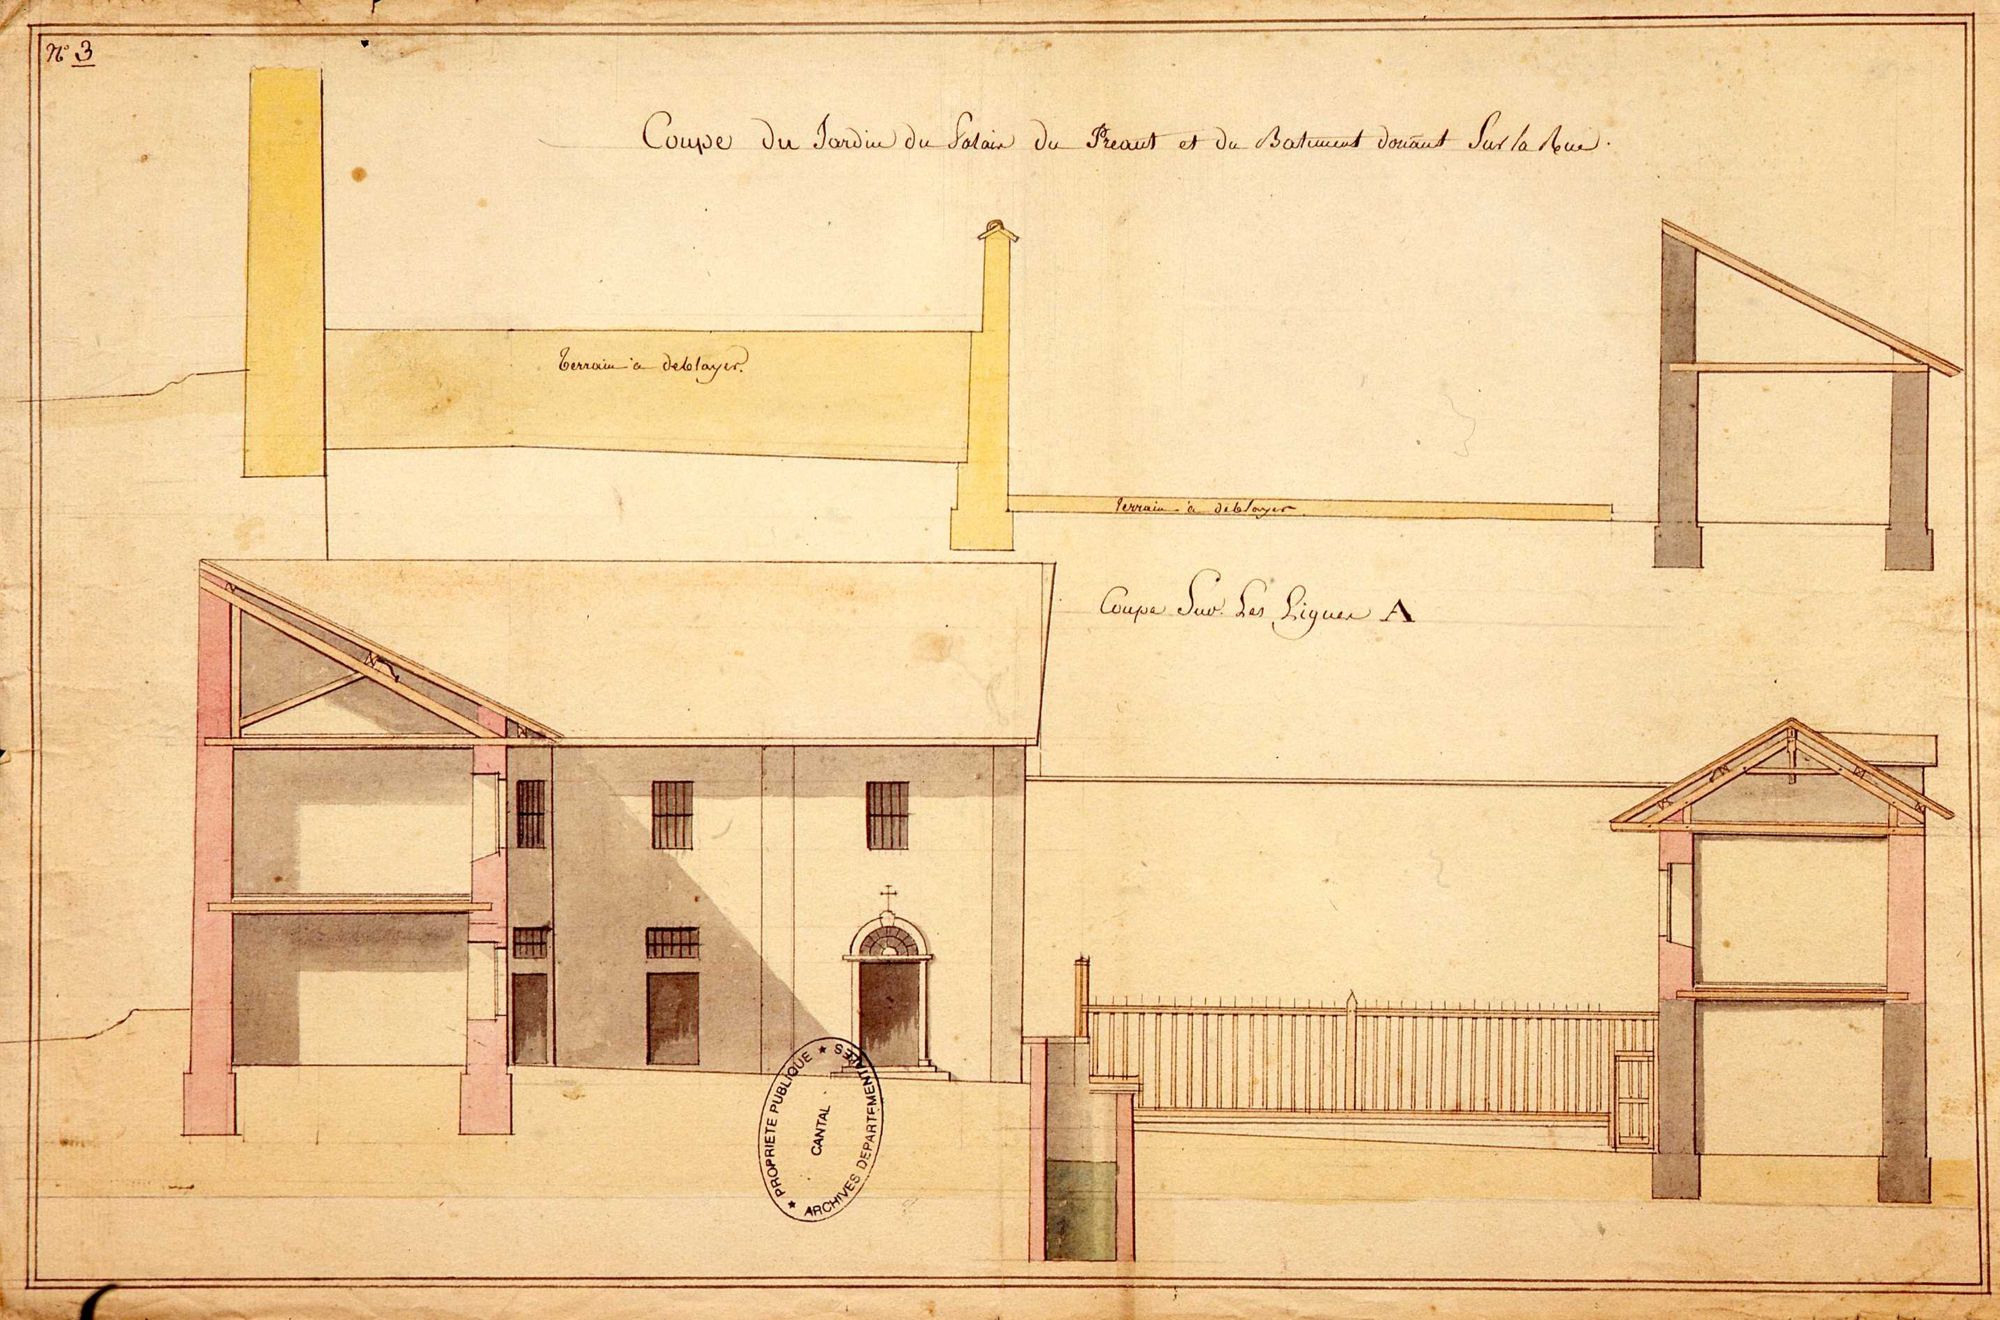 N° 3
Coupe du Jardin du Palais du Preaut et du Batiment donant Sur la Rue.
terrain a deblayer.
terrain a deblayer
Coupe Sur Les Lignes A
PROPRIETE PUBLIQUE
CANTAL
ARCHIVES DEPARTEMENTALES